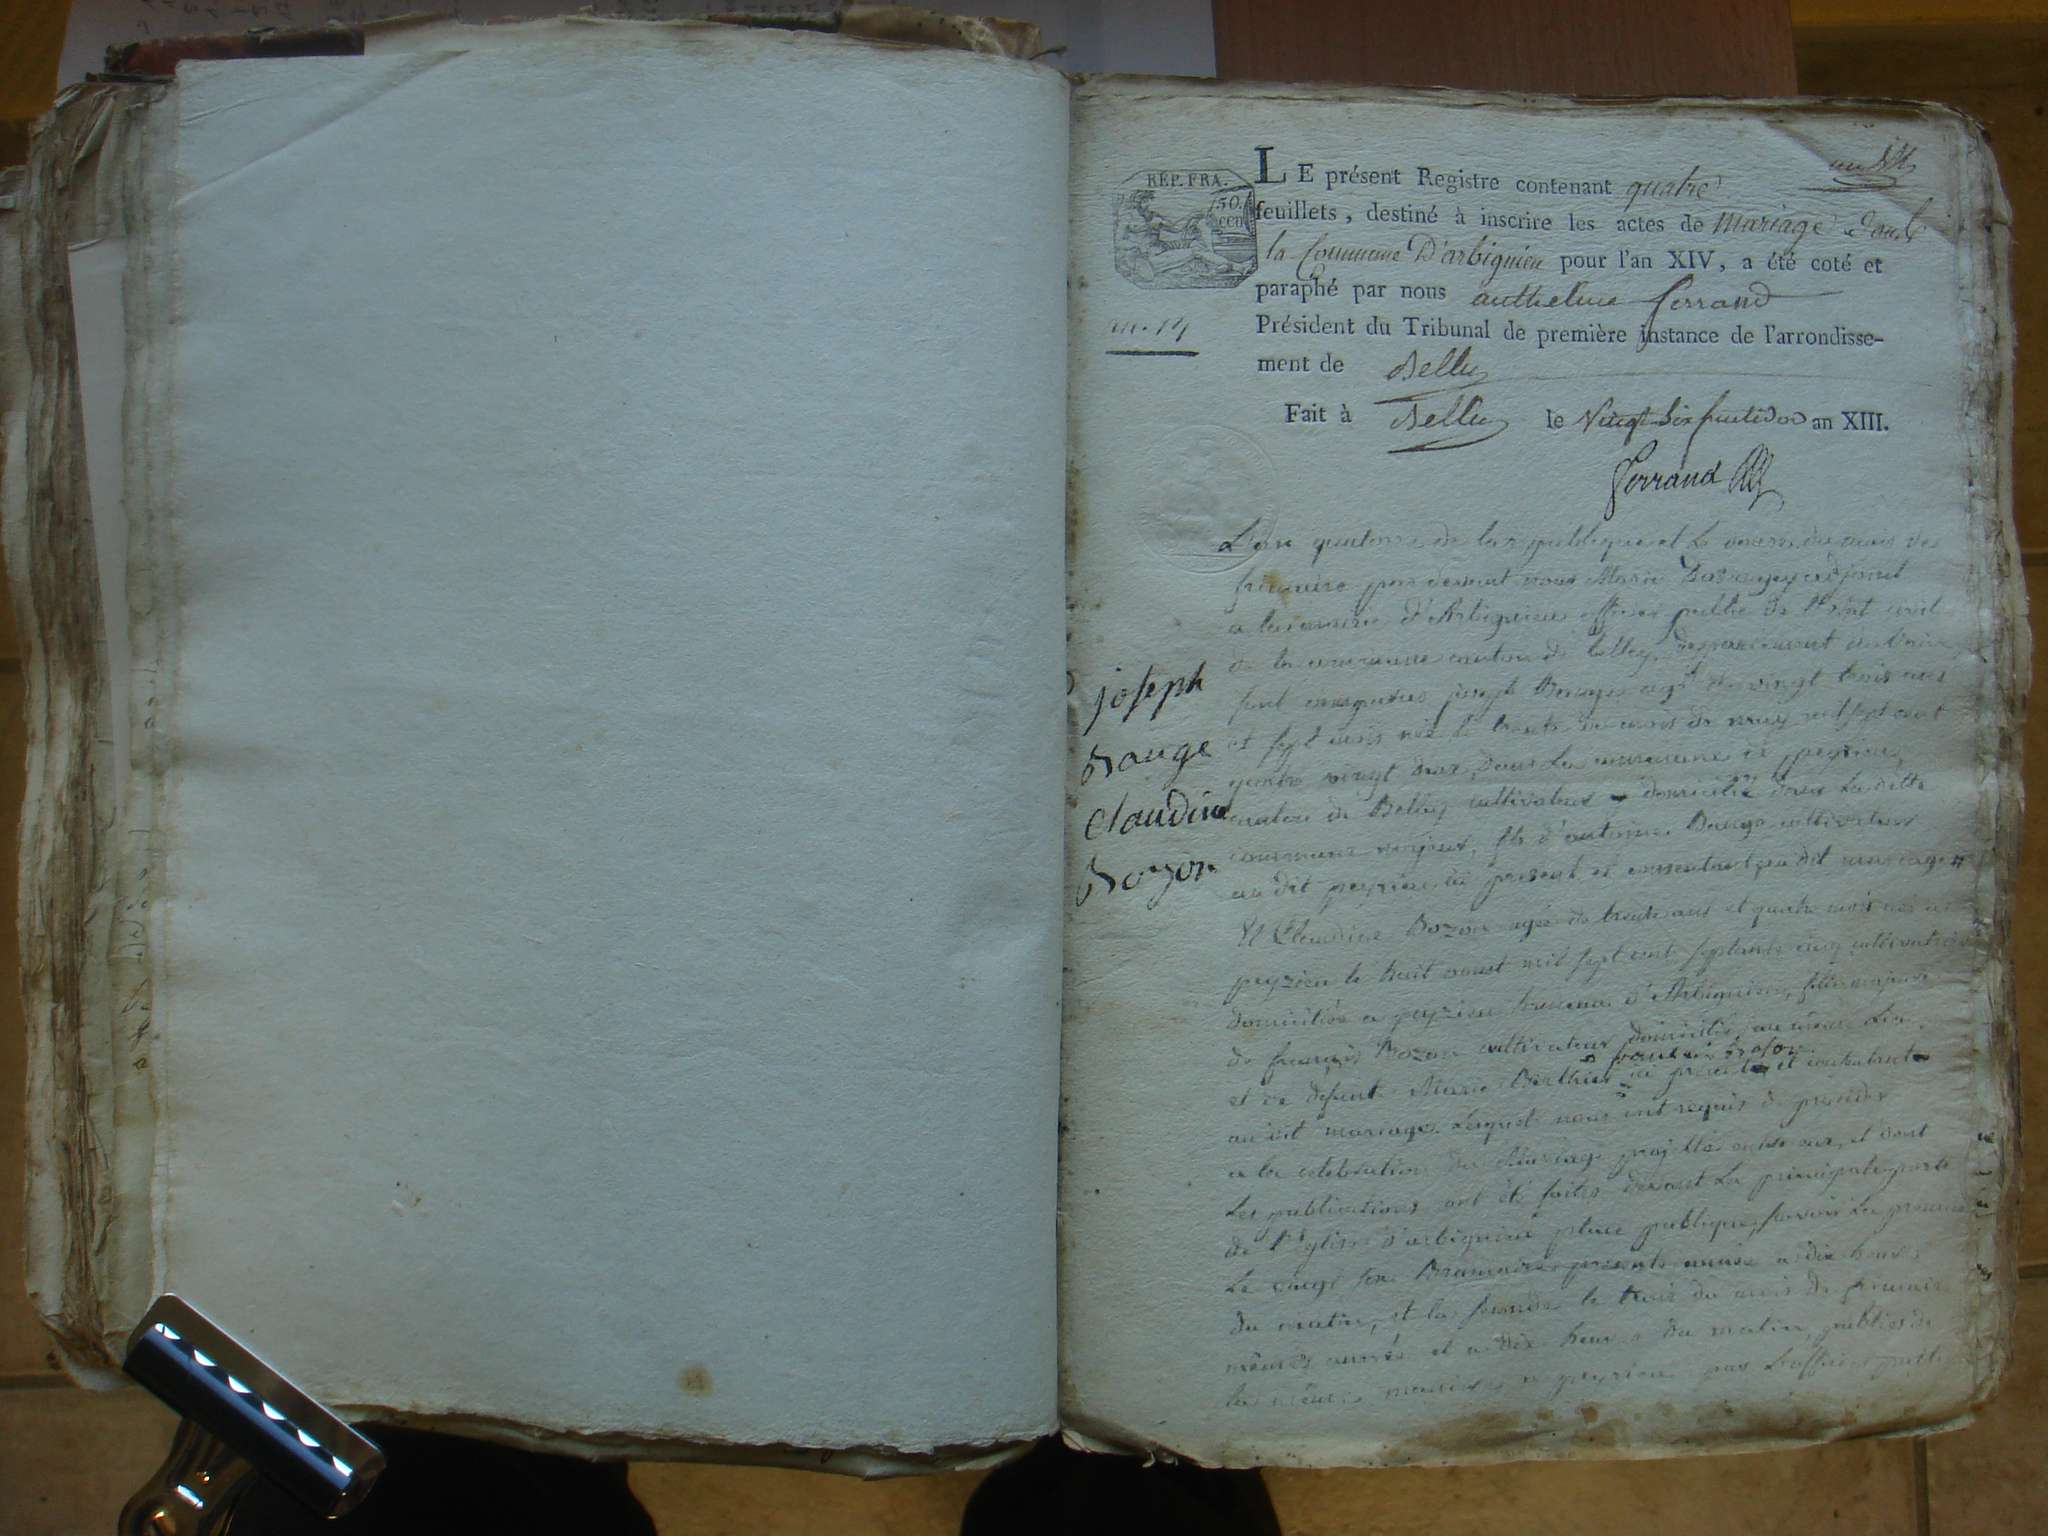 REP. FRA.
50.
cen
LE présent Registre contenant quatre
feuillets, destiné à inscrire les actes de Mariage dans
la Commune D'arbignieu pour l'an XIV, a été coté et
paraphé par nous anthelme ferrand
Président du Tribunal de première instance de l'arrondisse-
ment de Belley
Fait à Belley le Vingt Six fructidor an XIII.
ferrand
an. 14
joseph
Bauge
Claudine
Bozon
L'an quatorze de la republique et le du mois de
frimaire par devant nous Marin adjoint
a la mairie d'Arbignieu officier public de l'état civil
de la commune canton de belley, departement de l'ain
sont comparus joseph Bauge agé de vingt trois ans
et sept mois né le trente du mois de mil sept cent
quatre vingt deux, dans la commune de peyrieu,
canton de Belley cultivateur domicilié dans la ditte
commune majeur, fils d'antoine Bauge cultivateur
au dit peyrieu ici present et consentant au dit mariage
Et Claudine Bozon agée de trente ans et quatre mois née a
peyzieu le huit aoust mil sept cent septante cinq cultivatrice
domiciliée a peyzieu hameau d'Arbignieu, fille majeure
de françois Bozon cultivateur domicilié au même lieu
et de defunt Marie Berthier françois bozon ici present et consentant
au dit mariage. Lesquels nous ont requis de proceder
a la celebration du Mariage projetté entre eux, et dont
les publications ont été faites devant la principale porte
de l'Eglise d'arbignieu place publique, savoir la premiere
le vingt six Brumaire presente année a dix heures
du matin, et la seconde le trois du mois de frimaire
même année et a dix heures du matin, publiés
les mêmes a peyrieu par l'officier public